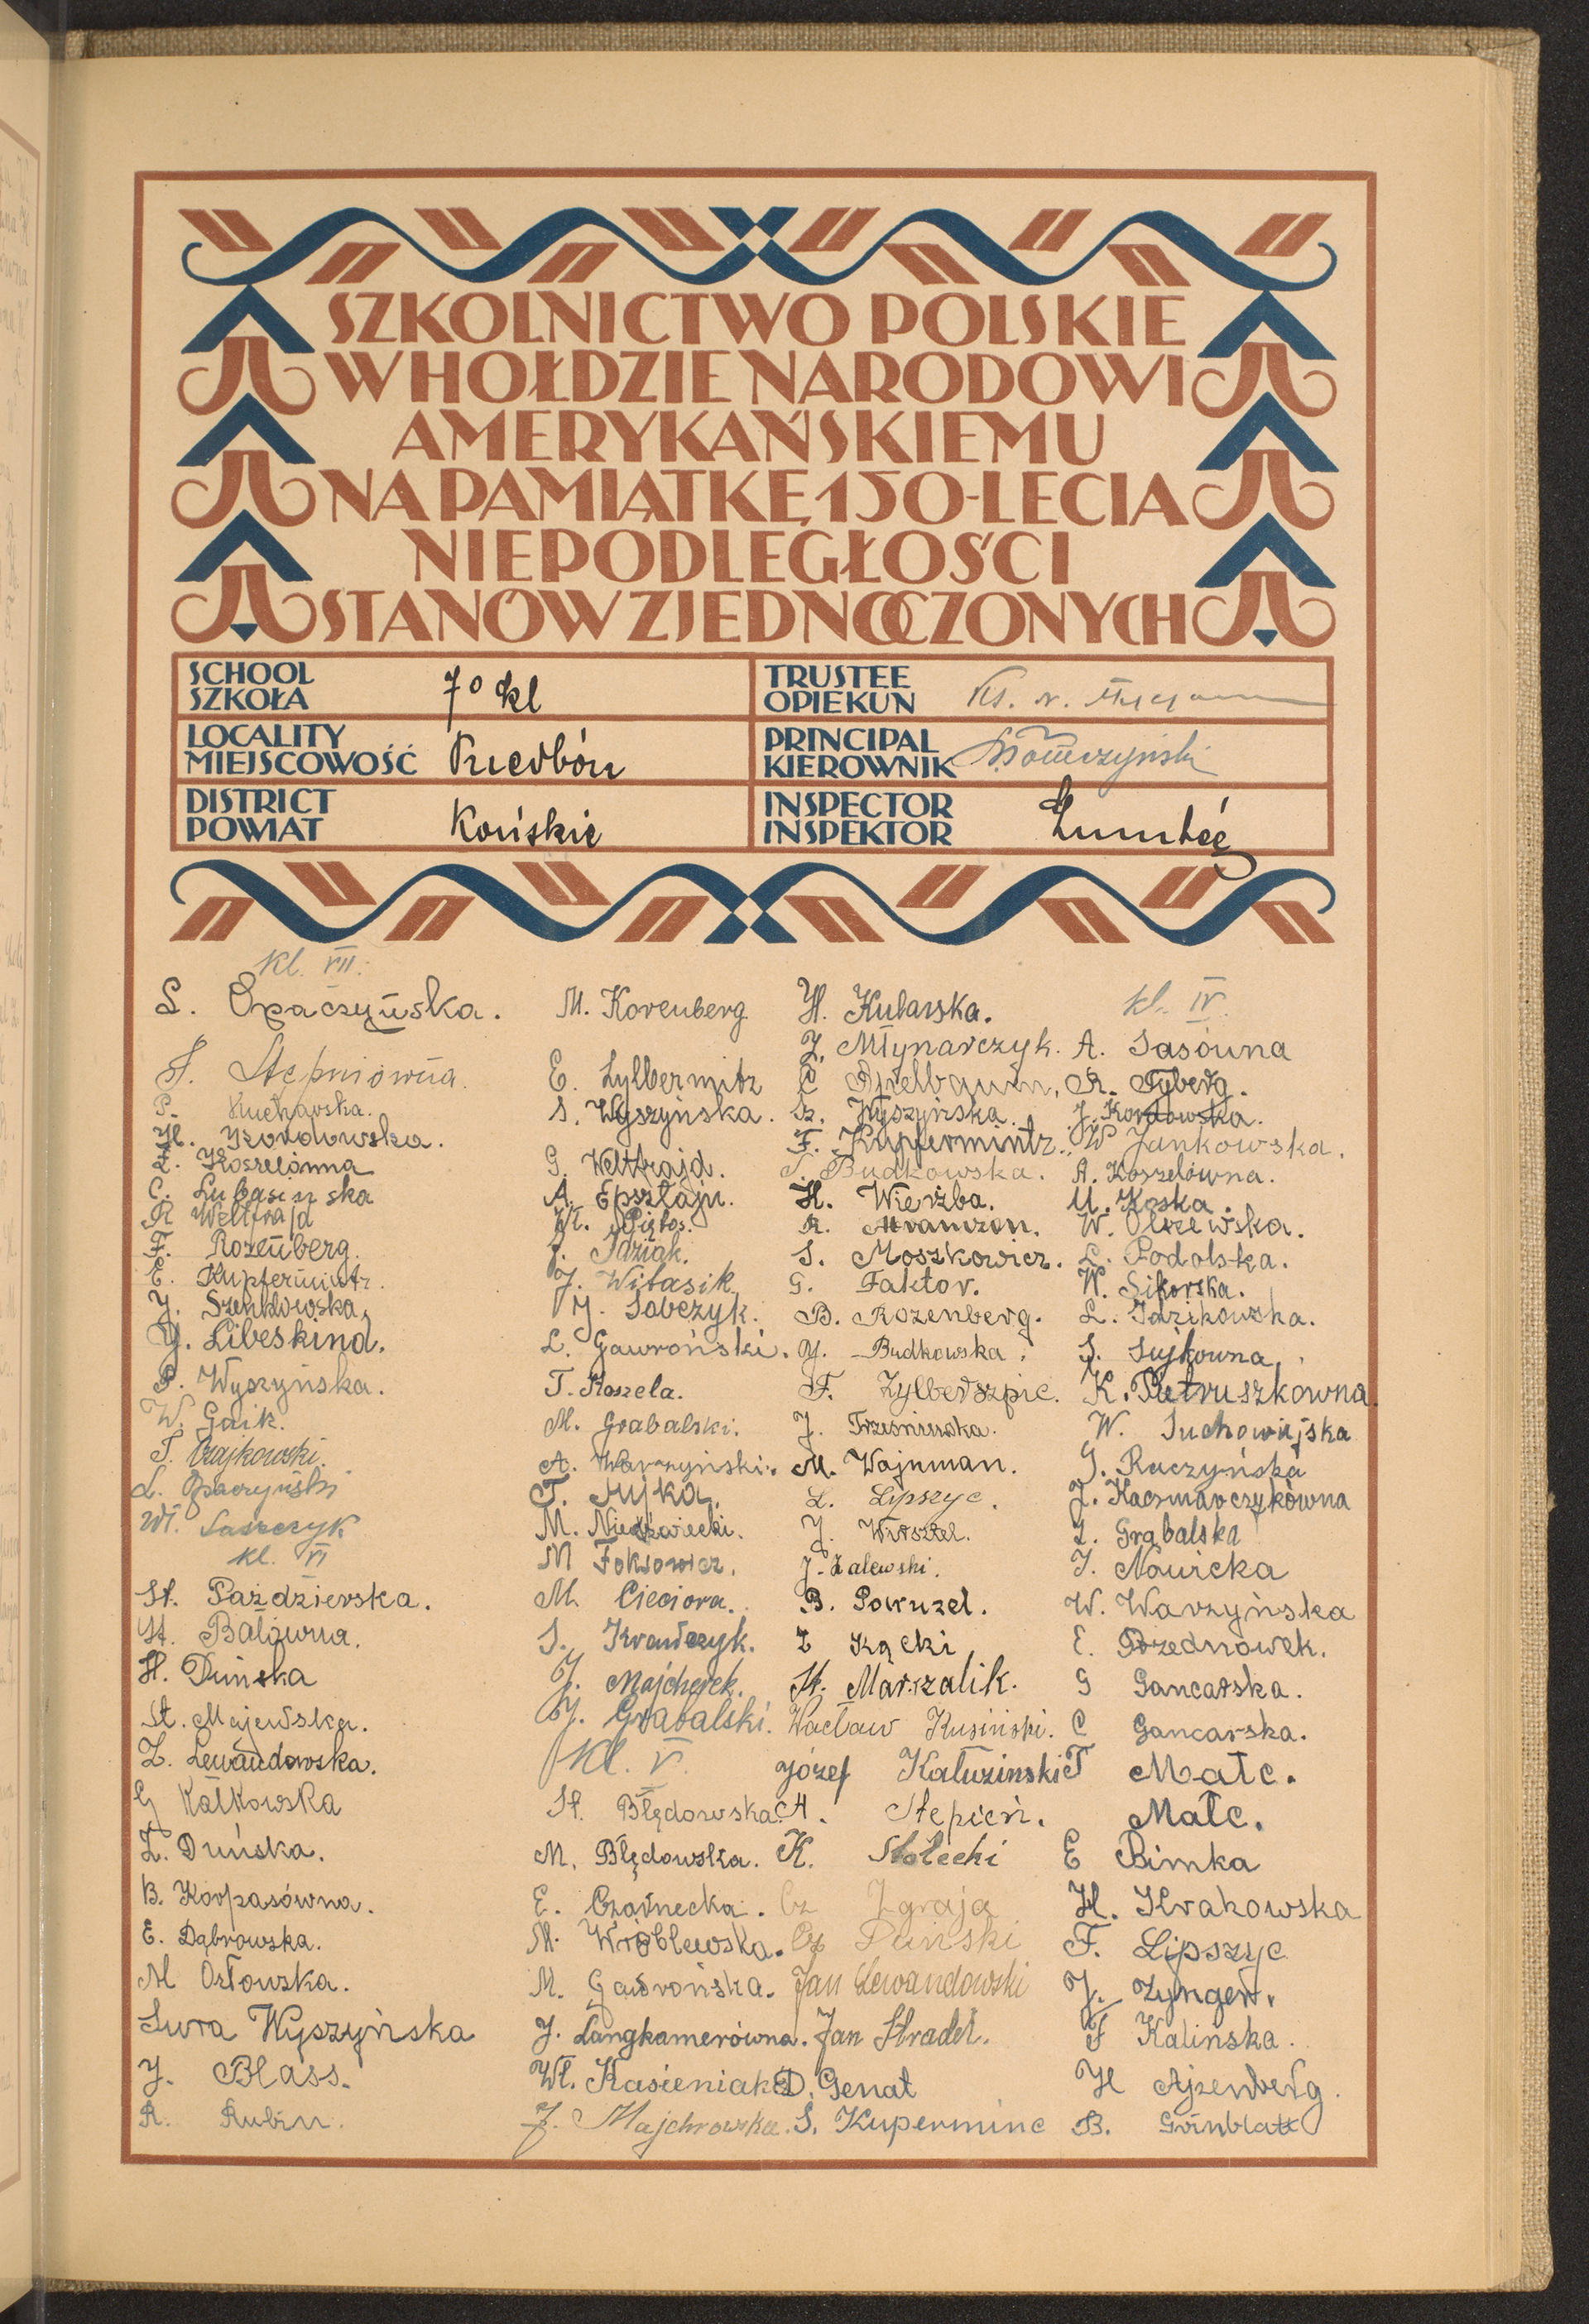 SZKOLNICTWO POLSKIE
W HOŁDZIE NARODOWI
AMERYKAŃSKIEMU
NA PAMIĄTKĘ 150-LECIA
NIEPODLEGŁOŚCI
STANÓW ZJEDNOCZONYCH
SCHOOL
SZKOŁA
7o kl
TRUSTEE
OPIEKUN
Ks.
LOCALITY
MIEJSCOWOŚĆ
Przedbórz
PRINCIPAL
KIEROWNIK
DISTRICT
POWIAT
Końskie
INSPECTOR
INSPEKTOR
kl. VII.
S. Opaczyńska.
Stępniówna.
P. Kucharska.
H. Kordowska.
Z. Koszelówna
C. Lubasińska
R Weltfrajd
F. Rozenberg.
E. Kupfermintz.
J. Szenklowska,
Y. Libeskind.
P. Wyszyńska.
W. Gaik.
T. Czajkowski.
L. Opaczyński
Wł. Saszczyk
kl. VI
St. Paździerska.
St. Balówna.
H. Duńska
St. Majewska.
Z. Lewandowska.
G Kałkowska
Z. Duńska.
B. Karpasówna.
E. Dąbrowska.
M Osłowska.
Sura Wyszyńska
J. Blass.
R. Rubin.
M. Korenberg
E. Zylbermitz
S. Wyszyńska.
G. Weltfrajd.
A. Epsztajn.
Wł. Piętos.
J. Idziak.
J. Witasik
M. Sobczyk.
L. Gawroński.
T. Koszela.
M. Grabalski.
A. Warzyński.
T. Sujka.
M. Niedźwiecki.
M Foksowicz.
M. Cieciora.
S. Krawczyk.
J. Majcherek.
M. Grabalski.
kl. V.
St. Błędowska.
M. Błędowska.
E. Czarnecka.
M. Wróblewska.
M. Gawrońska.
J. Langkamerówna.
Wł. Kasieniak
J. Majchrowska.
H. Kularska.
J. Młynarczyk.
C Apelbaum,
Sz. Wyszyńska.
F. Kupfermintz.
S. Budkowska.
H. Wierzba.
R. Abramzon.
S. Moszkowicz.
G. Faktor.
B. Rozenberg.
Y. Budkowska.
F. Zylberszpic.
J. Trześniewska.
M. Wajnman.
L. Lipszyc.
J. Wirsztel.
J. Zalewski.
B. Powruzel.
Z Kącki
St. Marszalik.
Wacław Kusiński.
Józef Kałuzinski
A. Stępień.
K. Stolecki
Cz Zgraja
Cz Duński
Jan Lewandowski
Jan Stradel.
D. Genat
S. Kuperminc
kl. IV.
A. Sasówna
R. Tyberg.
J. Kordowska.
W Jankowska.
A. Koszelówna.
M. Koska.
W. Olszewska.
L. Podolska.
W. Sikorska.
L. Idzikowska.
S. Sujkowna,
K. Pietruszkowna
W. Suchowiejska
G. Raczyńska
J. Kaczmarczykówna
Z. Grąbalska
J. Nowicka
W. Warzyńska
E. Przednówek.
G Gancarska.
C Gancarska.
T Małc.
Małc.
E Bimka
H. Krakowska
F. Lipszyc
J. Zynger.
F Kalinska.
H Ajzenberg.
B. Grinblatt